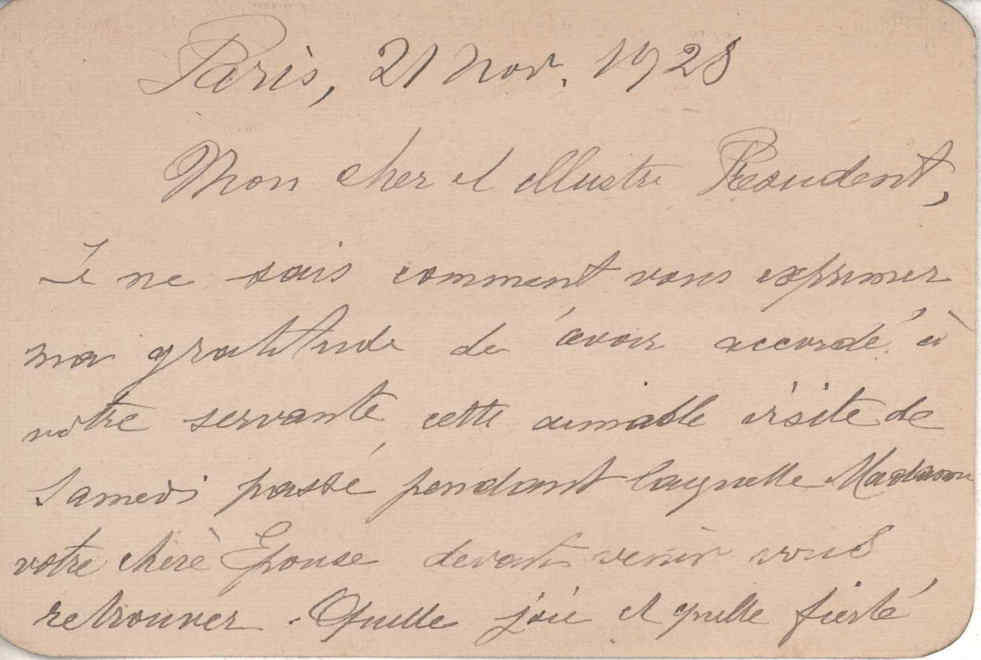 Paris, 21 Nov. 1928
Mon cher et illustre Président,
Je ne sais comment vous exprimer
ma gratitude de avoir accordé à
votre servante cette aimable visite de
Samedi passé pendant laquelle Madame
votre chère Epouse devait venir vous
retrouver. Quelle joie et quelle fierté